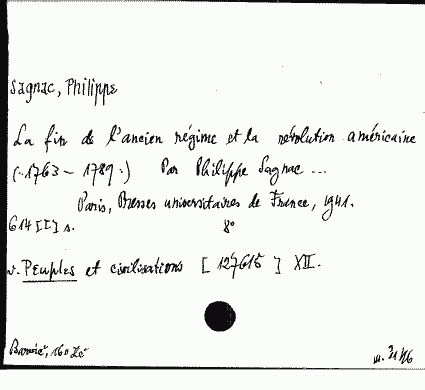 Sagnac, Philippe
La fin de l'ancien régime et la révolution américaine
(.1763 - 1789.) Par Philippe Sagnac ...
Paris, Presses universitaires de France, 1941.
614 [I] s. 8°
v. Peuples et civilisations [127615] XII.
160 Kč